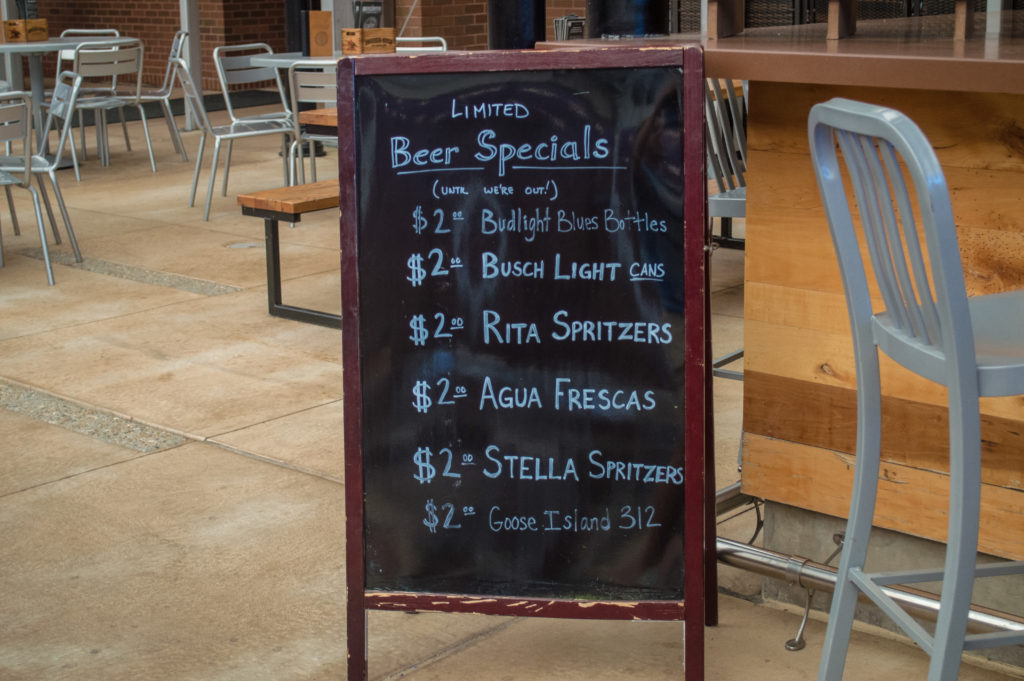 LIMITED
Beer Specials
(UNTIL WE'RE OUT!)
$2.00 Budlight Blues Bottles
$2.00 BUSCH LIGHT CANS
$2.00 RITA SPRITZERS
$2.00 AGUA FRESCAS
$2.00 STELLA SPRITZERS
$2.00 Goose Island 312